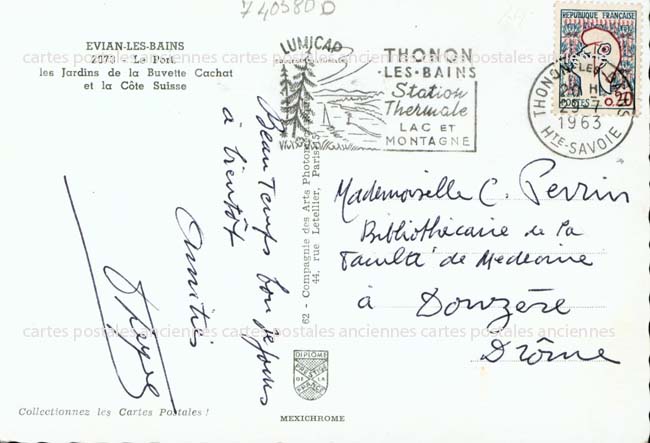 740580 D
EVIAN-LES-BAINS
2073 - Le Port
les Jardins de la Buvette Cachat
et la Côte Suisse
LUMICAP
THONON
-LES-BAINS
Station
Thermale
LAC ET
MONTAGNE
REPUBLIQUE FRANÇAISE
POSTES
0,20
THONON-LES-BAINS
20 H
29-7
1963
HTE-SAVOIE
Beau Temps bon séjour
à bientôt
Amitiés
62 - Compagnie des Arts Photomé
44, rue Letellier, Paris-15
Mademoiselle C. Perrin
Bibliothécaire de la
Faculté de Medecine
à Donzère
Drôme
cartes postales anciennes cartes postales anciennes cartes postales anciennes
cartes postales anciennes cartes postales anciennes cartes postales anciennes
DIPLOME
PRESTIGE
DE LA
FRANCE
Collectionnez les Cartes Postales !
MEXICHROME